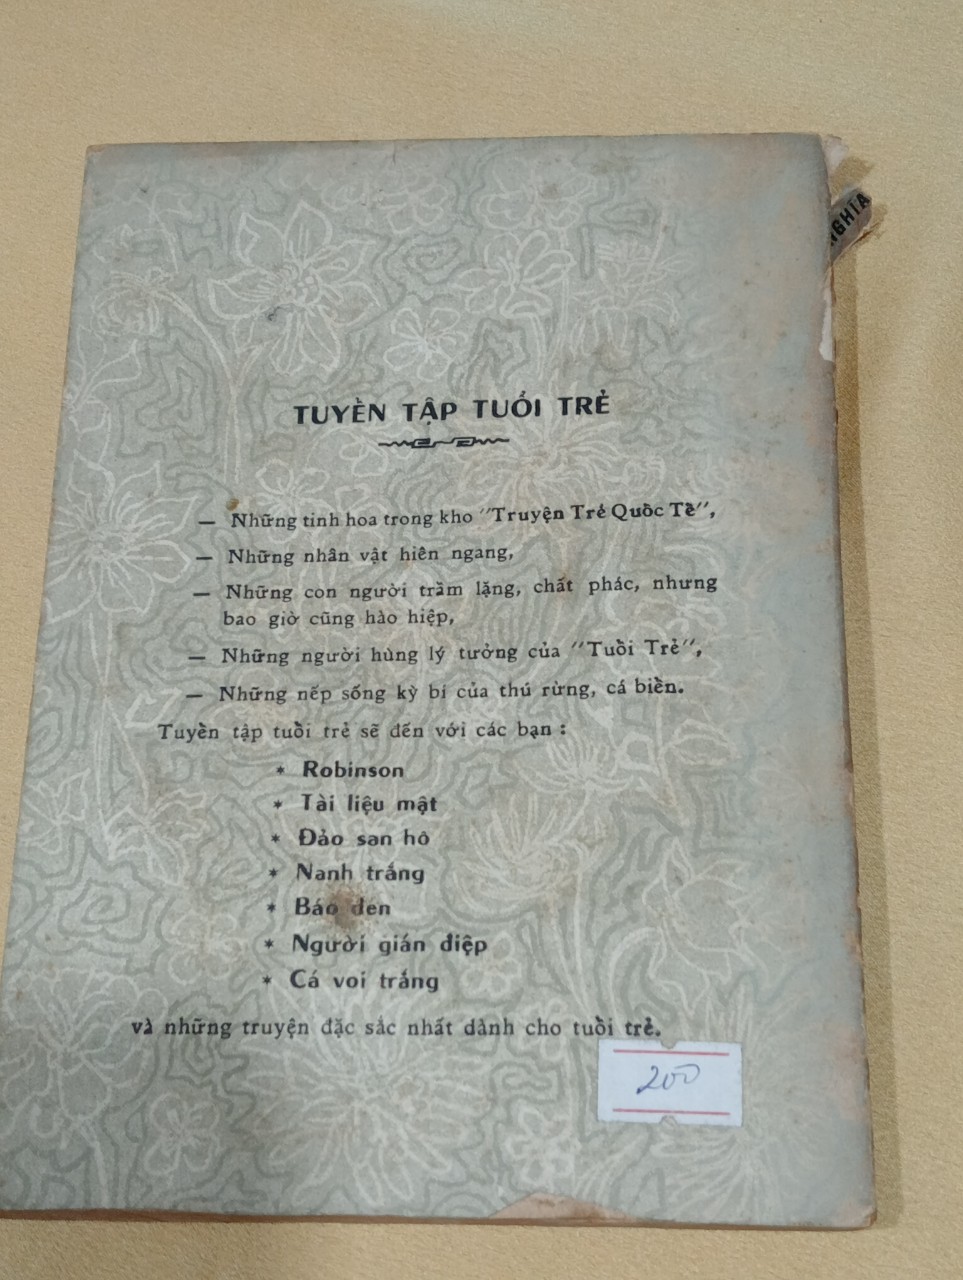 NGHĨA
TUYỀN TẬP TUỔI TRẺ
— Những tinh hoa trong kho "Truyện Trẻ Quốc Tế",
— Những nhân vật hiên ngang,
— Những con người trầm lặng, chất phác, nhưng
bao giờ cũng hào hiệp,
— Những người hùng lý tưởng của "Tuổi Trẻ",
— Những nếp sống kỳ bí của thú rừng, cá biển.
Tuyển tập tuổi trẻ sẽ đến với các bạn :
* Robinson
* Tài liệu mật
* Đảo san hô
* Nanh trắng
* Báo đen
* Người gián điệp
* Cá voi trắng
và những truyện đặc sắc nhất dành cho tuổi trẻ.
200